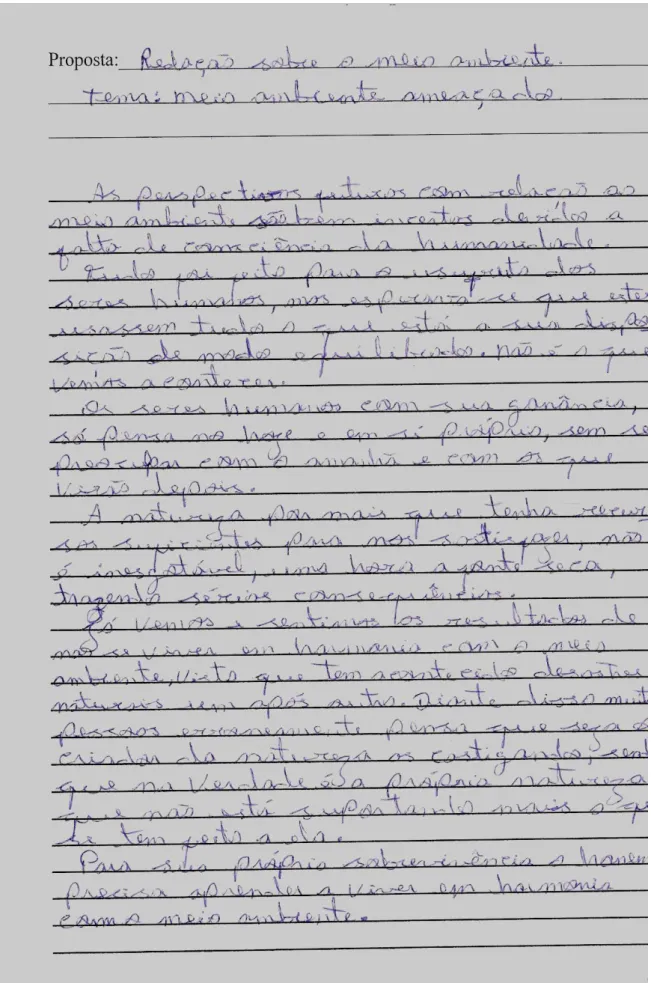 Proposta: Redação sobre o meio ambiente.
Tema: meio ambiente ameaçado.
As perspectivas futuros com relação ao
meio ambiente são bem incertos devidos a
falta de consciência da humanidade.
Tudo foi feito para o usufruto dos
seres humanos, mas esperava-se que estes
usassem tudo o que está a sua dispo
sição de modo equilibrado. Não é o que
vemos acontecer.
Os seres humanos com sua ganância,
só pensa no hoje e em si próprio, sem se
preocupar com o amanhã e com os que
virão depois.
A natureza por mais que tenha recur
sos suficientes para nos satisfazer, não
é inesgotável, uma hora a fonte seca,
trazendo sérias consequências.
Já vemos e sentimos os resultados de
não se viver em harmonia com o meio
ambiente, visto que tem acontecido desastres
naturais um após outro. Diante disso muit
pessoas erroneamente pensa que seja o
criador da natureza os castigando, send
que na verdade é a própria natureza
que não está suportando mais o qu
se tem feito a ela.
Para sua própria sobrevivência o homem
precisa aprender a viver em harmonia
com o meio ambiente.